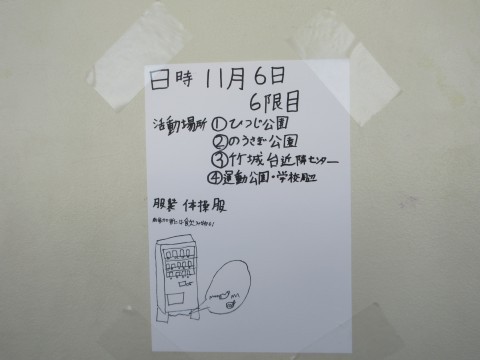 日時 11月6日
6限目
活動場所 ①ひつじ公園
②のうさぎ公園
③竹城台近隣センター
④運動公園・学校周辺
服装 体操服